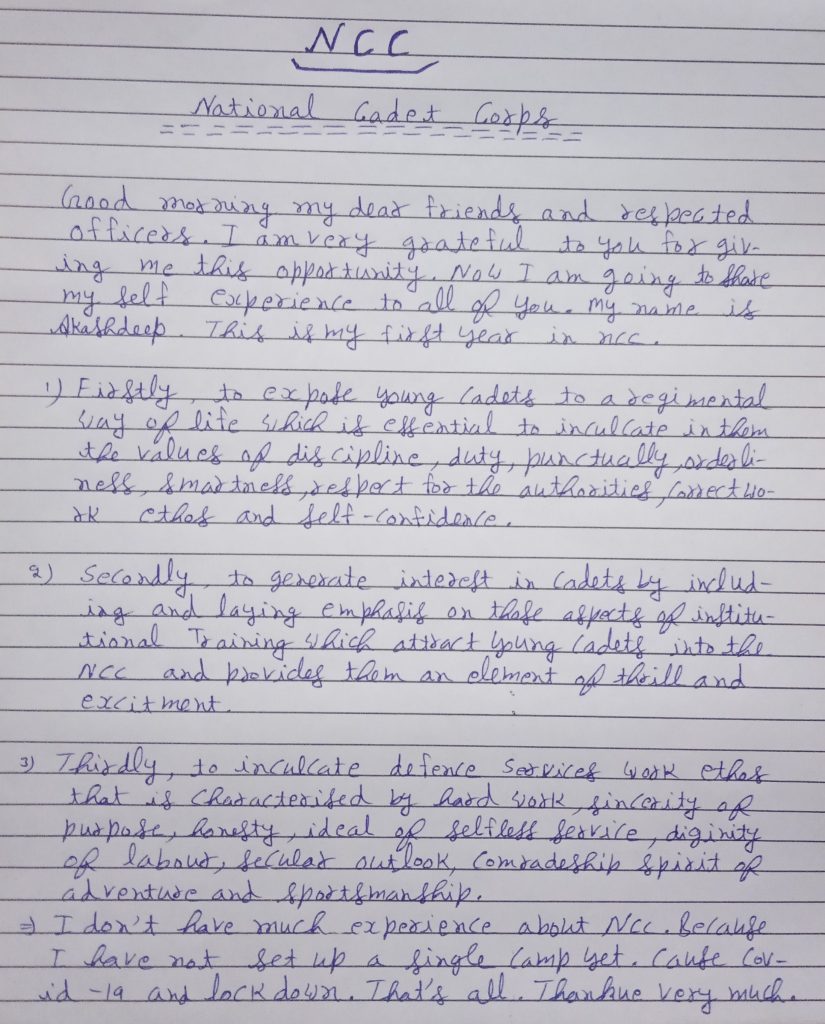 NCC
National Cadet Corps
Good morning my dear friends and respected
officers. I am very grateful to you for giv-
ing me this opportunity. Now I am going to share
my self experience to all of you. My name is
Akashdeep. This is my first year in ncc.
1) Firstly, to expose young cadets to a regimental
way of life which is essential to inculcate in them
the values of discipline, duty, punctually, orderli-
ness, smartness, respect for the authorities, correct wo-
rk ethos and self-confidence.
2) Secondly, to generate interest in cadets by includ-
ing and laying emphasis on those aspects of institu-
tional Training which attract young cadets into the
NCC and provides them an element of thrill and
excitment.
3) Thirdly, to inculcate defence services work ethos
that is characterised by hard work, sincerity of
purpose, honesty, ideal of selfless service, diginity
of labour, secular outlook, comradeship spirit of
adventure and sportsmanship.
⇒ I don't have much experience about NCC. Because
I have not set up a single camp yet. Cause Cov-
id -19 and lock down. That's all. Thankue very much.